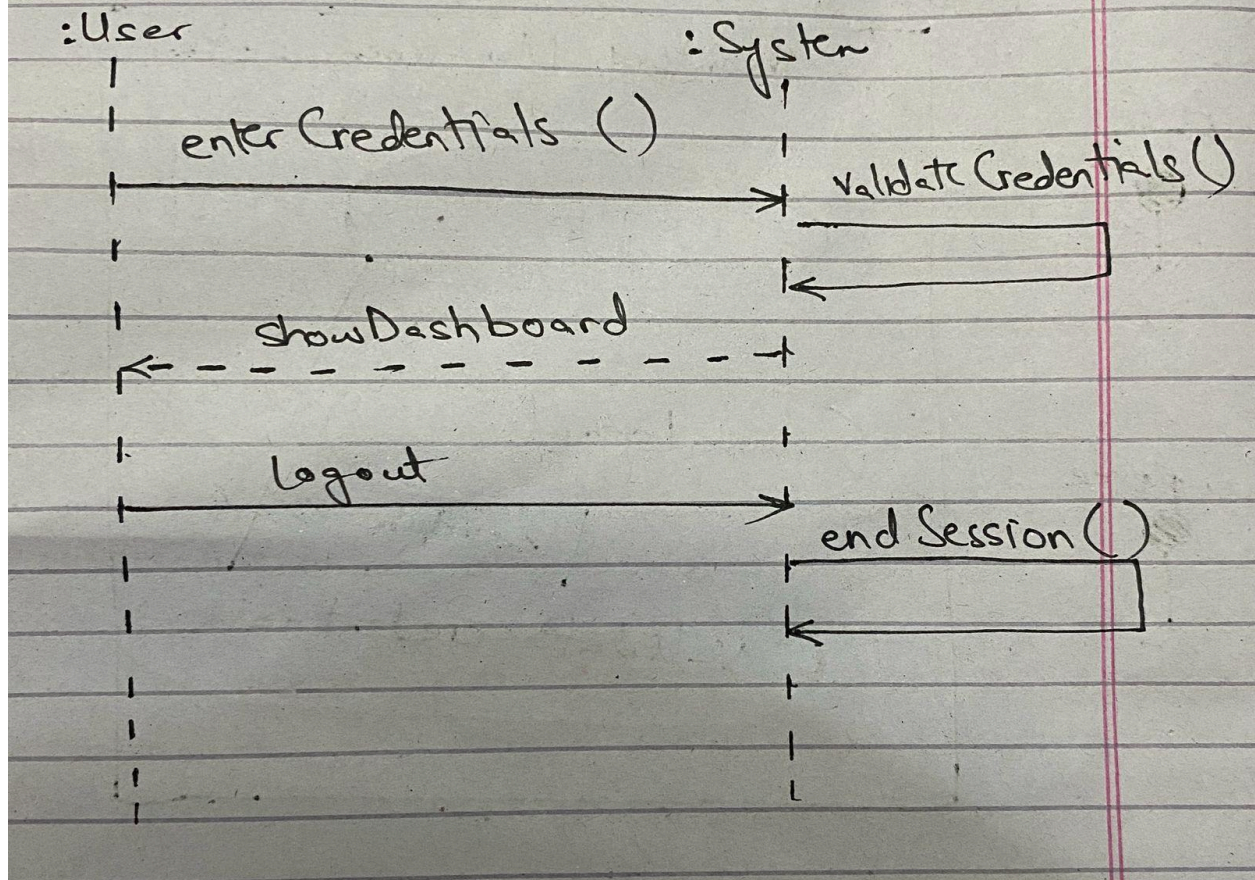 :User
:System
enterCredentials ()
validateCredentials()
showDashboard
logout
endSession()